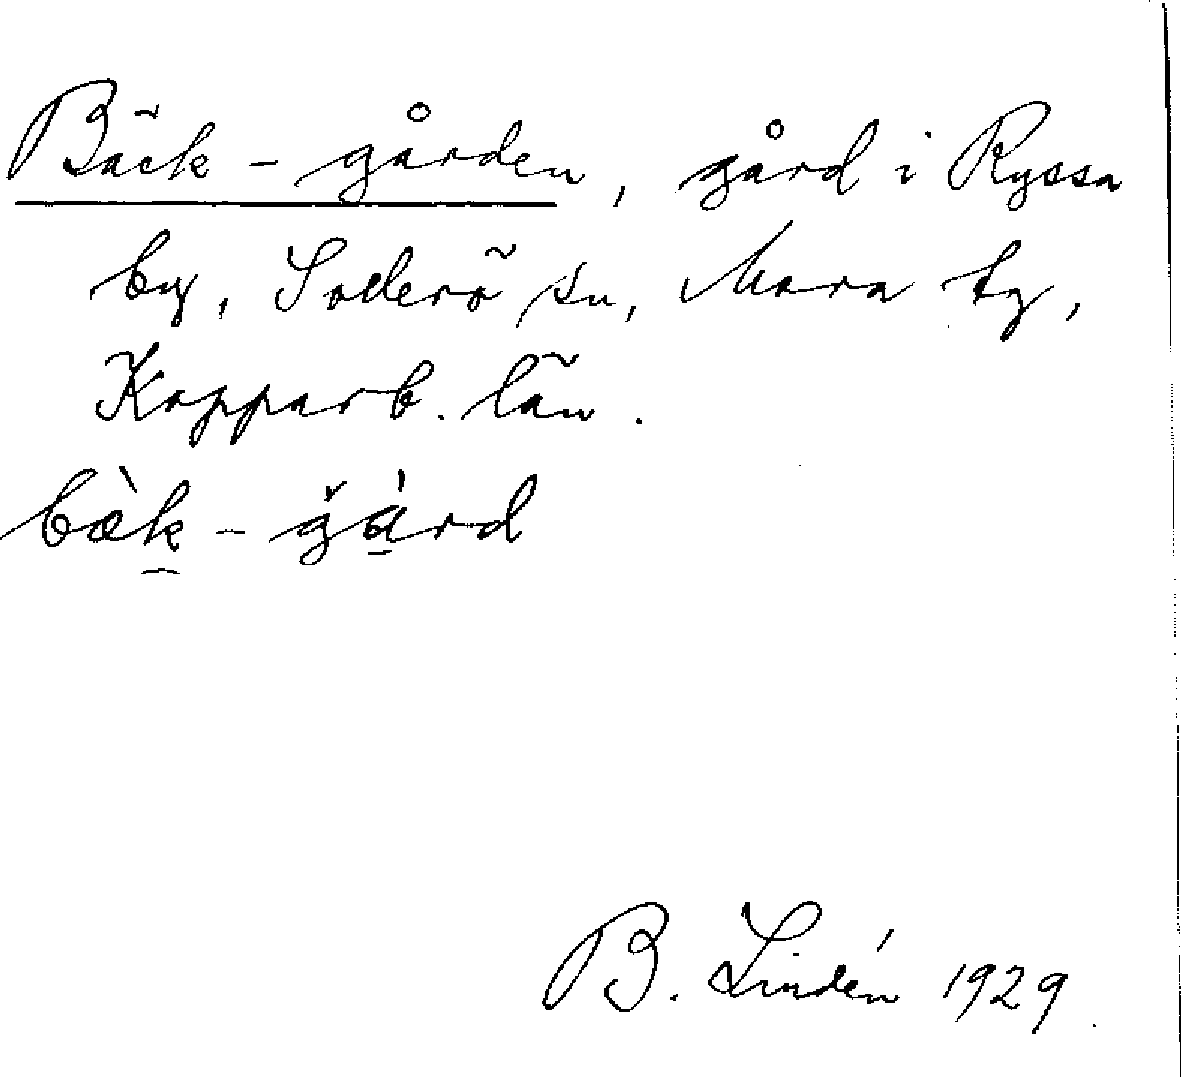 Bäck-gården, gård i Ryssa
by, Soderö sn, Mora tg,
Kopparb. län.
bæ̀k-gård
B. Lindén 1929.